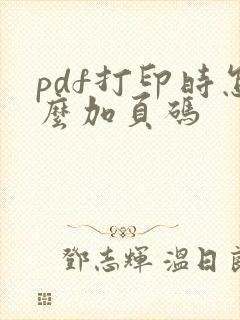 pdf打印时怎
麼加頁碼
鄧志輝 溫日良